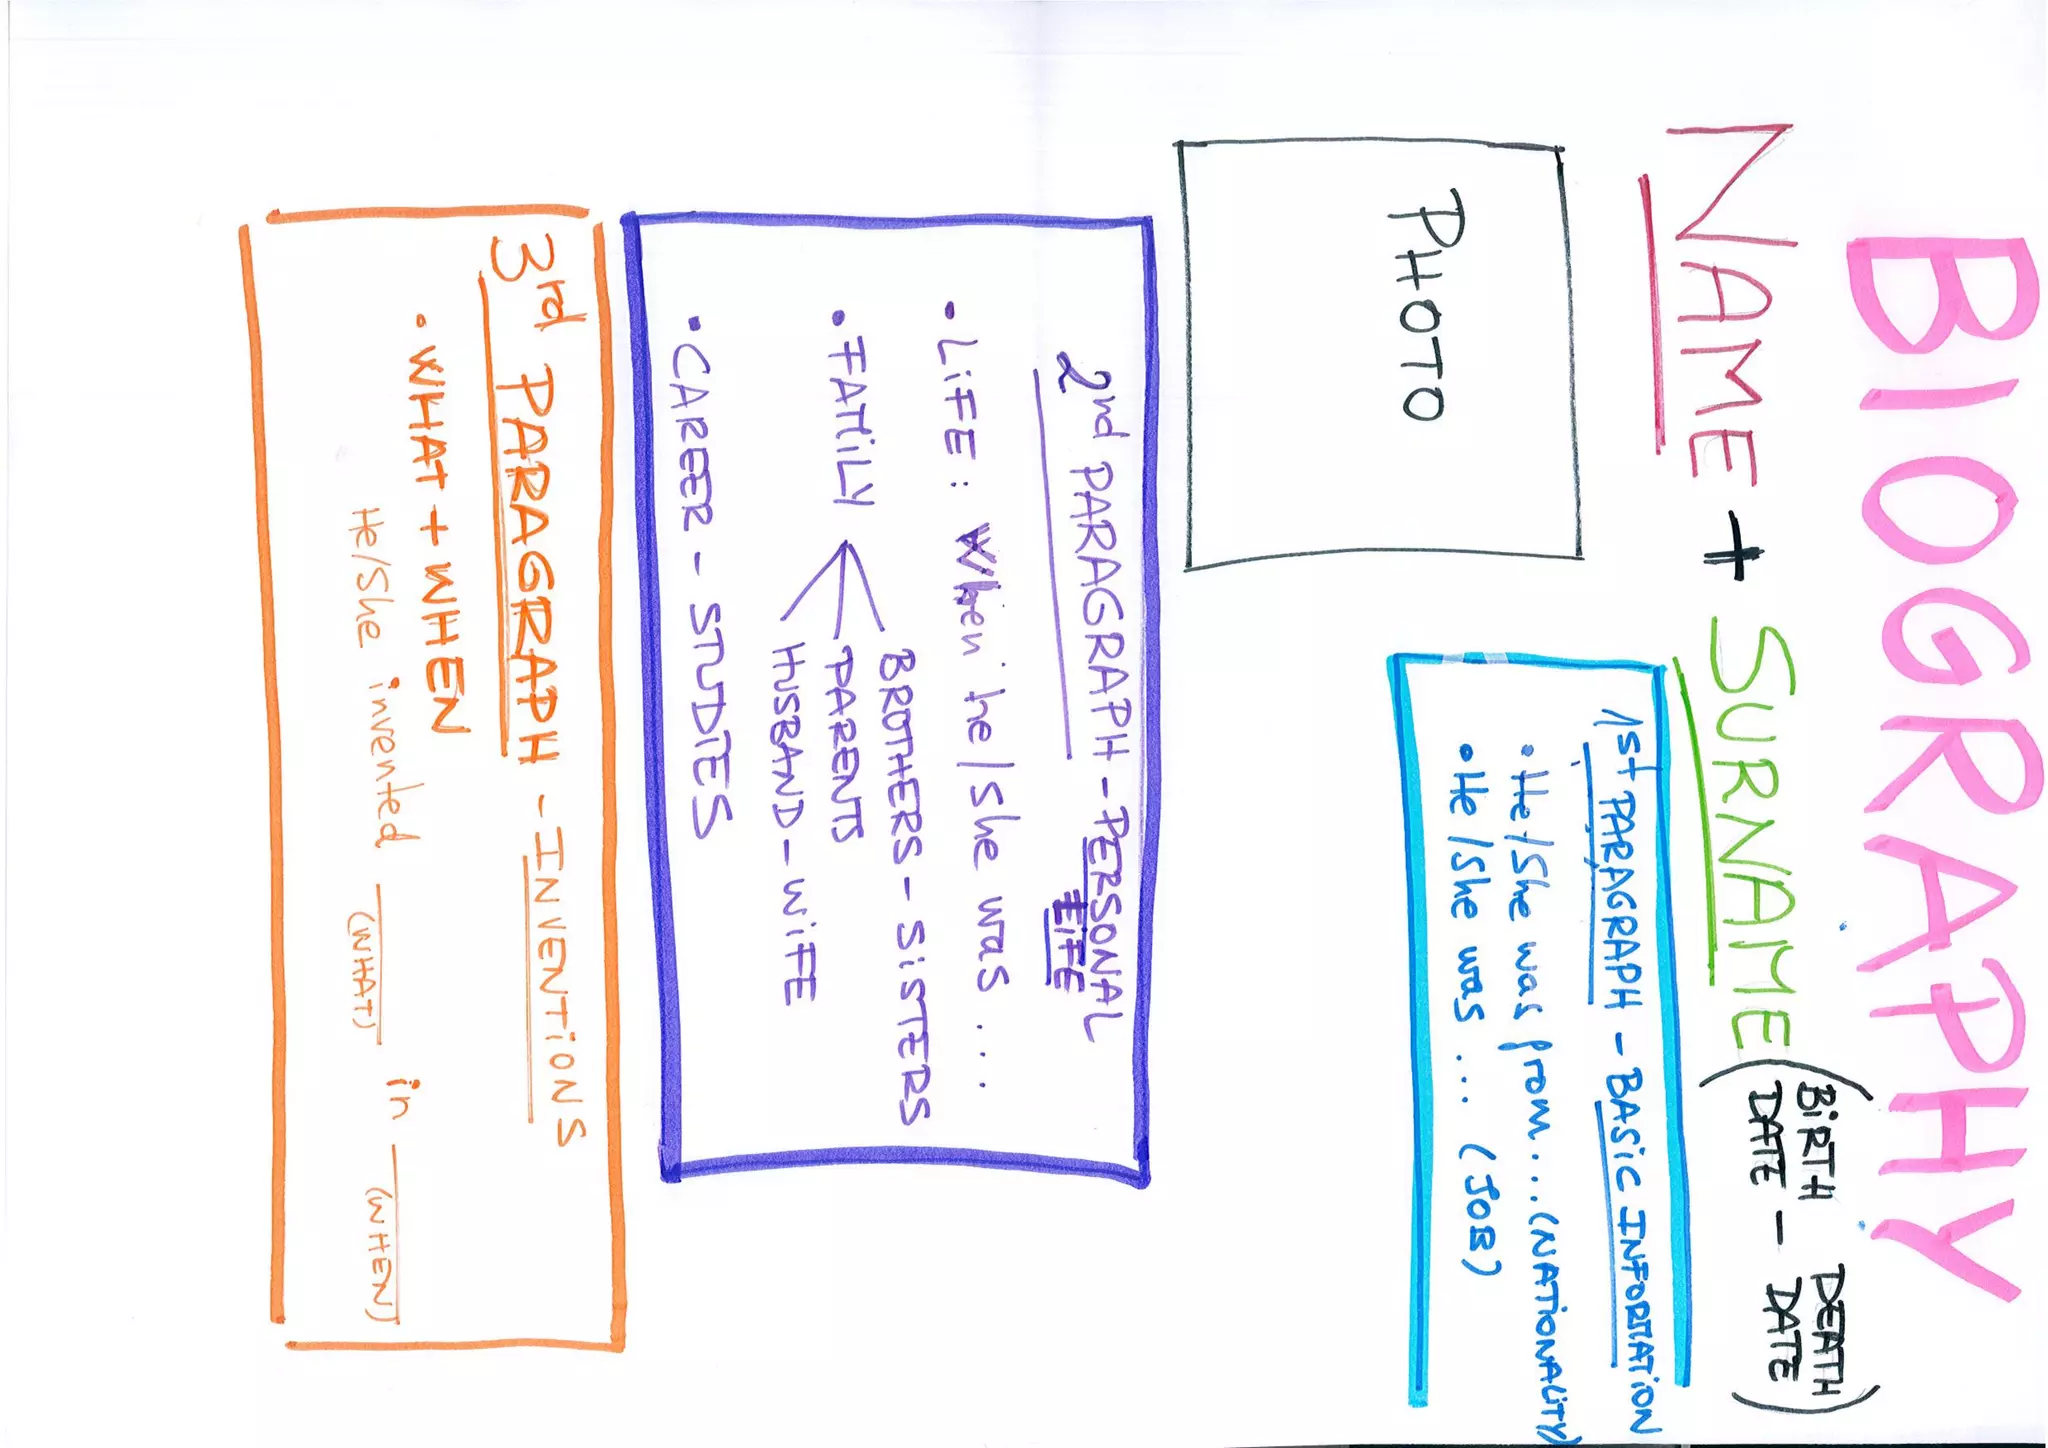 BIOGRAPHY
NAME + SURNAME (BIRTH DATE - DEATH DATE)
PHOTO
1st PARAGRAPH - BASIC INFORMATION
• He/She was from... (NATIONALITY)
• He/She was ... (JOB)
2nd PARAGRAPH - PERSONAL
LIFE
• LIFE: When he/she was ...
• FAMILY
BROTHERS - SISTERS
PARENTS
HUSBAND - WIFE
• CAREER - STUDIES
3rd PARAGRAPH - INVENTIONS
• WHAT + WHEN
He/She invented ____ in ____
(WHAT) (WHEN)